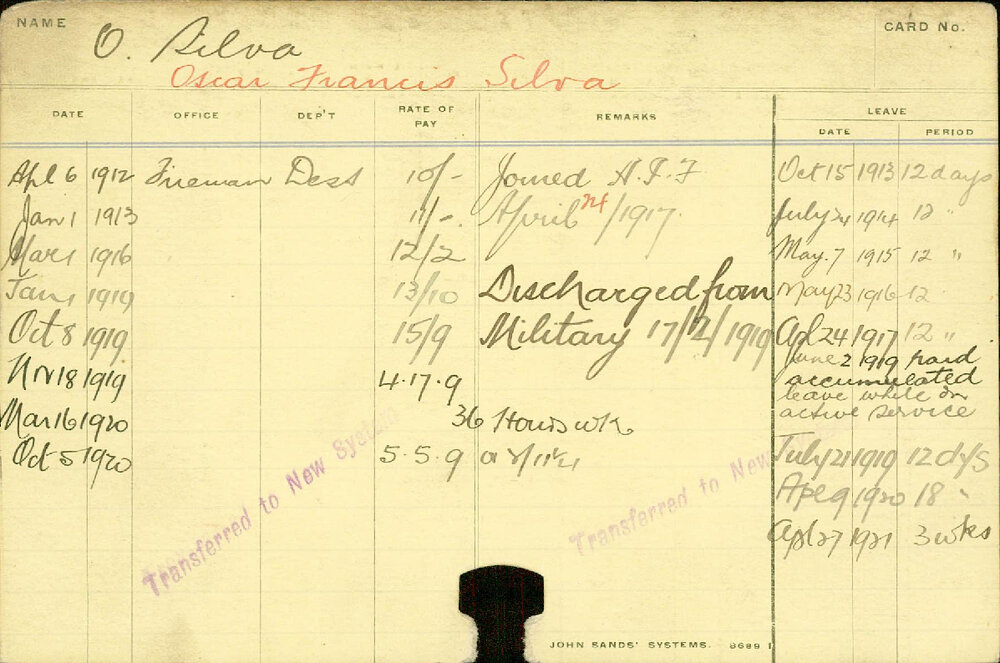 NAME
O. Silva
CARD No.
Oscar Francis Silva
DATE OFFICE DEP'T RATE OF PAY REMARKS LEAVE
DATE PERIOD
Apl 6 1912 Fireman Dess 10/- Joined A.I.F Oct 15 1913 12 days
Jan 1 1913 11/- April 24/1917. July 24 1914 12 "
Mar 1 1916 12/2 May. 7 1915 12 "
Jan 1 1919 13/10 Discharged from May 23 1916 12
Oct 8 1919 15/9 Military 17/12/1919 Apl 24 1917 12 "
June 2 1919 paid
Nov 18 1919 4.17.9 accumulated
leave while on
Mar 16 1920 36 Hours wk active service
Oct 5 1920 5.5.9 July 21 1919 12 dys
Apl 9 1920 18 "
Apl 27 1921 3 wks
Transferred to New System
Transferred to New
JOHN SANDS' SYSTEMS. 8689